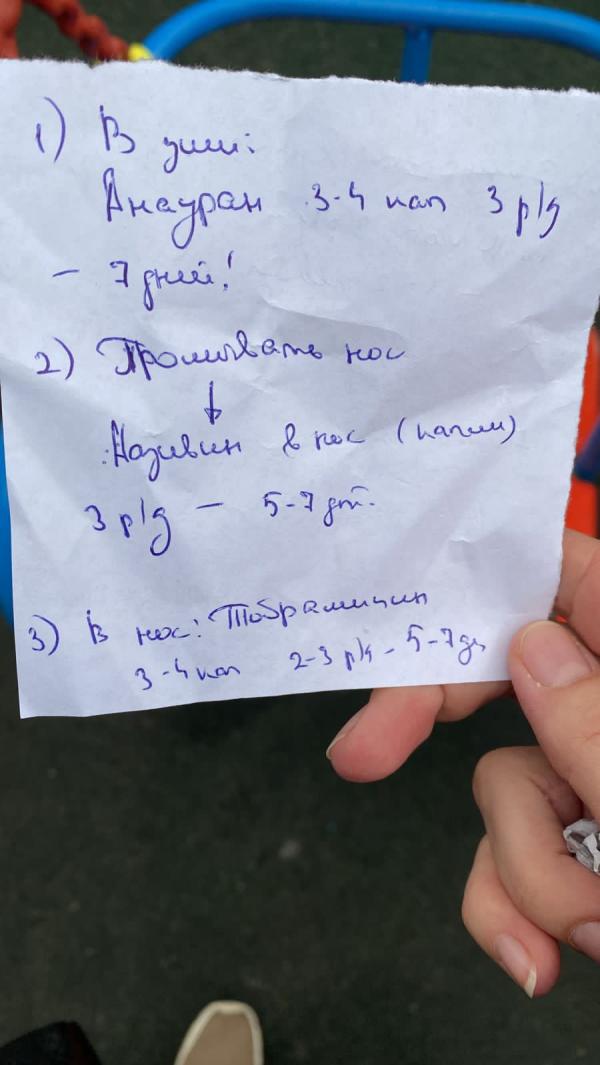 1) В уши:
Анауран 3-4 кап 3 р/д
– 7 дней!
2) Промывать нос
↓
Називин в нос (капли)
3 р/д – 5-7 дн.
3) В нос: Тобрамицин
3-4 кап 2-3 р/д – 5-7 дн